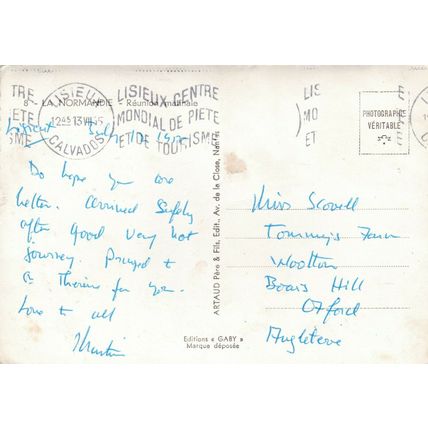 TRE
ETE
SME
LISIEUX
12H45 13 VII 55
CALVADOS
LISIEUX CENTRE
MONDIAL DE PIETE
ET DE TOURISME
LIS
MO
ET
8 - LA NORMANDIE - Réunion matinale
PHOTOGRAPHIE
VÉRITABLE
Lisieux July
Do hope you are
better. Arrived Safely
after good very hot
journey. Prayed to
St Thérèse for you.
Love to all
Martin
ARTAUD Père & Fils, Edit., Av. de la Close, Nantes
Editions « GABY »
Marque déposée
Miss Scovell
Tommy's Farm
Wootton
Boars Hill
Oxford
Angleterre